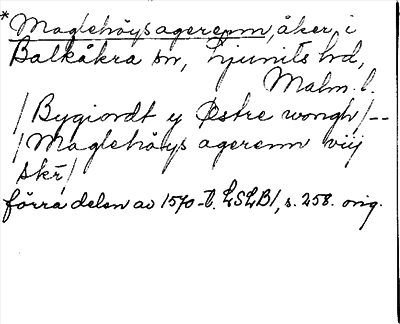 * Maglehöys agerenn, åker, i
Balkåkra sn, Ljunits hd,
Malm. l.
/Bygiordt y Østre wongh/--
/Maglehöys agerenn viij
skr̄/
förra delen av 1570-t. LSLB1, s. 258. orig.